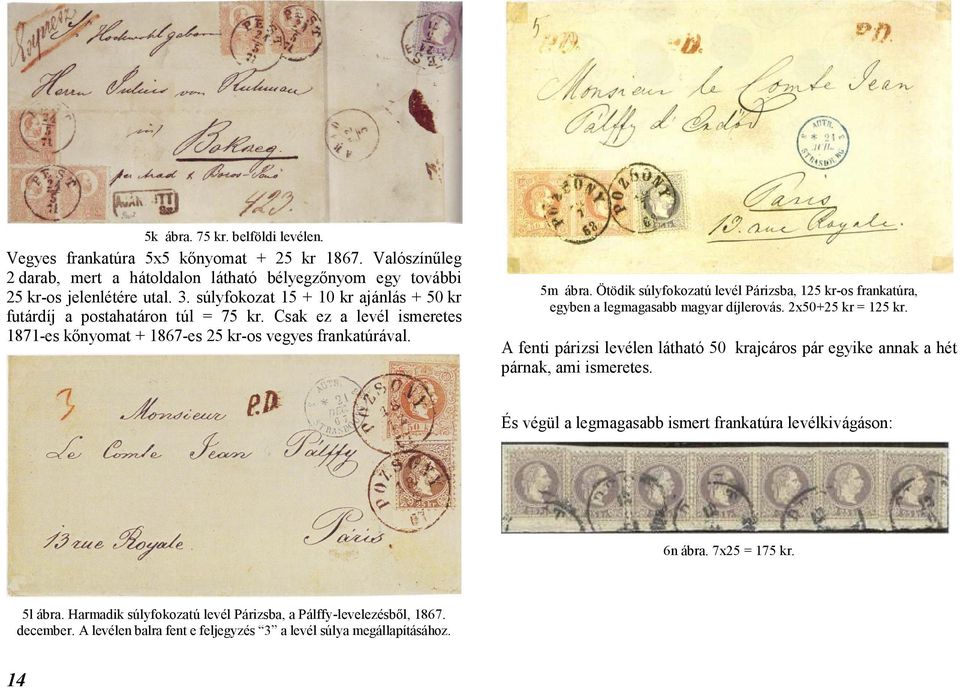 Expresz
Hochwohlgeboren
Herrn Julius von
in
per Arad &
AJÁNLOTT
423.
PEST
PEST
PEST
PEST
ARAD
5k ábra. 75 kr. belföldi levélen.
Vegyes frankatúra 5x5 kőnyomat + 25 kr 1867. Valószínűleg
2 darab, mert a hátoldalon látható bélyegzőnyom egy további
25 kr-os jelenlétére utal. 3. súlyfokozat 15 + 10 kr ajánlás + 50 kr
futárdíj a postahatáron túl = 75 kr. Csak ez a levél ismeretes
1871-es kőnyomat + 1867-es 25 kr-os vegyes frankatúrával.
3
P.D.
Monsieur
Le Comte Jean Pálffy
13 rue Royale.
Páris
AUTR.
21
DEC
STRASBOURG
POZSONY
POZSONY
5l ábra. Harmadik súlyfokozatú levél Párizsba, a Pálffy-levelezésből, 1867.
december. A levélen balra fent e feljegyzés “3” a levél súlya megállapításához.
14
5
P.D.
P.D.
P.D.
Monsieur le Comte Jean
Pálffy d'Erdöd
Paris
13. rue Royale.
AUTR.
21
STRASBOURG
POZSONY
POZSONY
5m ábra. Ötödik súlyfokozatú levél Párizsba, 125 kr-os frankatúra,
egyben a legmagasabb magyar díjlerovás. 2x50+25 kr = 125 kr.
A fenti párizsi levélen látható 50 krajcáros pár egyike annak a hét
párnak, ami ismeretes.
És végül a legmagasabb ismert frankatúra levélkivágáson:
6n ábra. 7x25 = 175 kr.